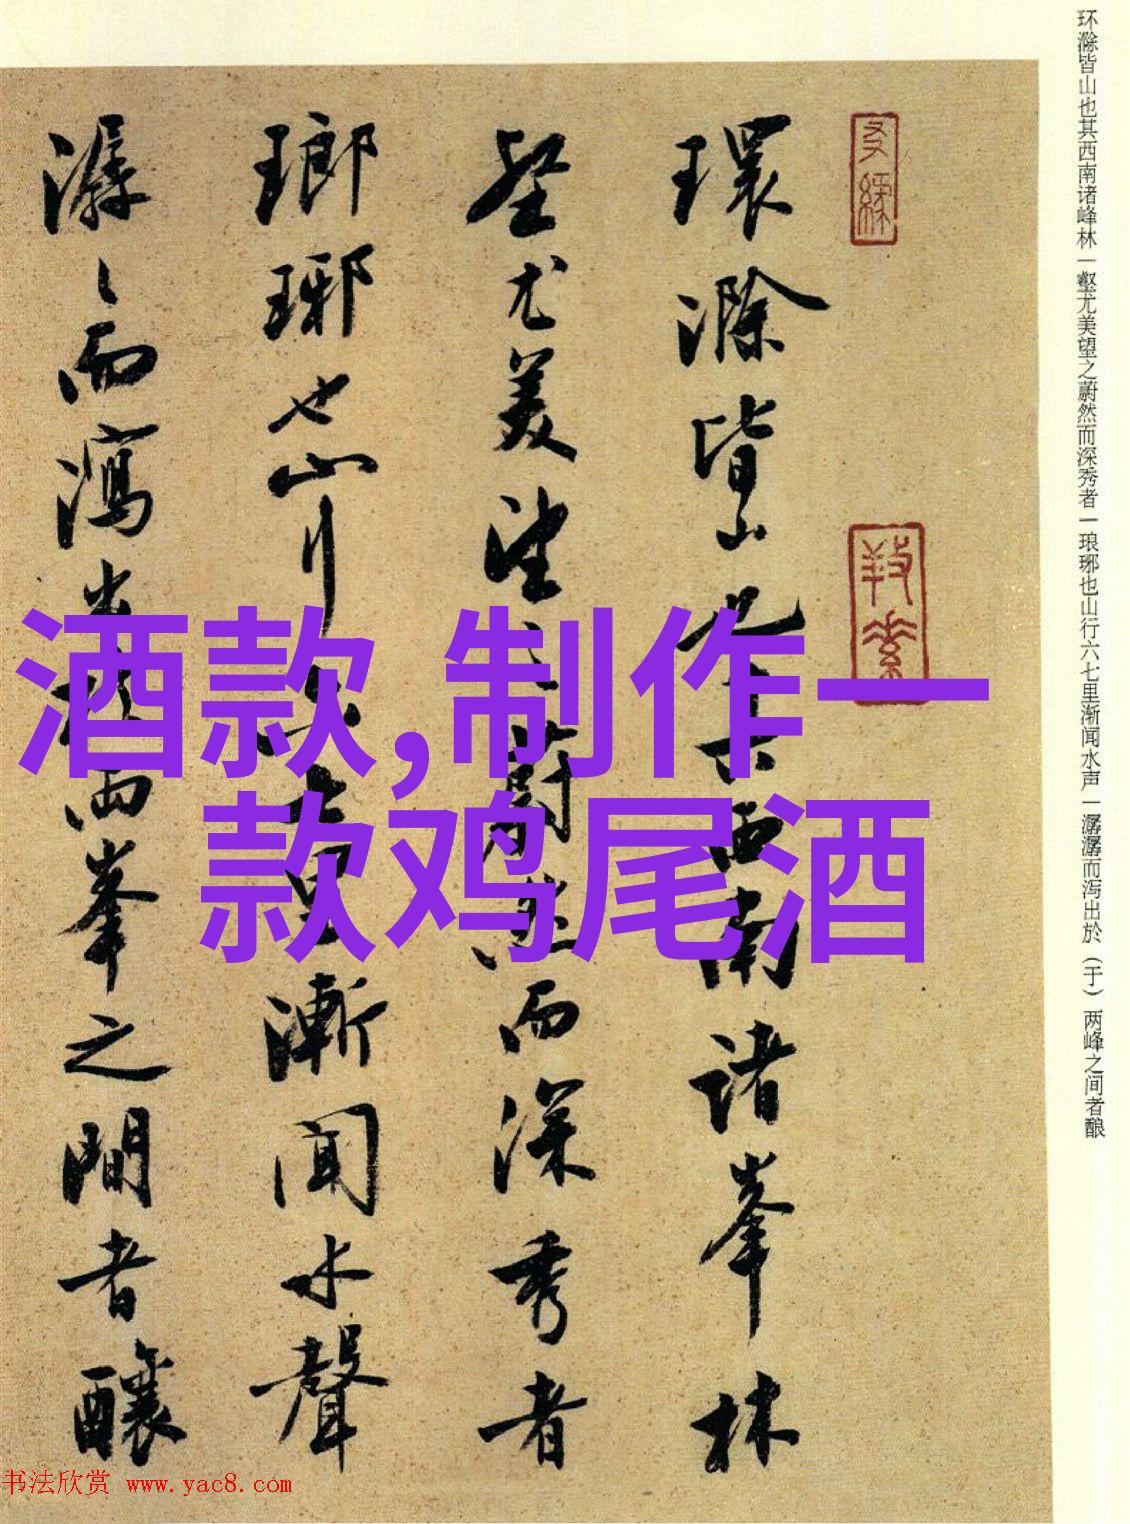 环滁皆山也其西南诸峰林一壑尤美望之蔚然而深秀者一琅琊也山行六七里渐闻水声一潺潺而泻出於（于）两峰之间者酿
環滁皆山也其西南诸峯林
壑尤美望之蔚然而深秀者
瑯琊也山行六七里漸闻水聲
潺々而瀉出于两峯之間者釀
酒款,制作一
款鸡尾酒
书法欣赏 www.yac8.com